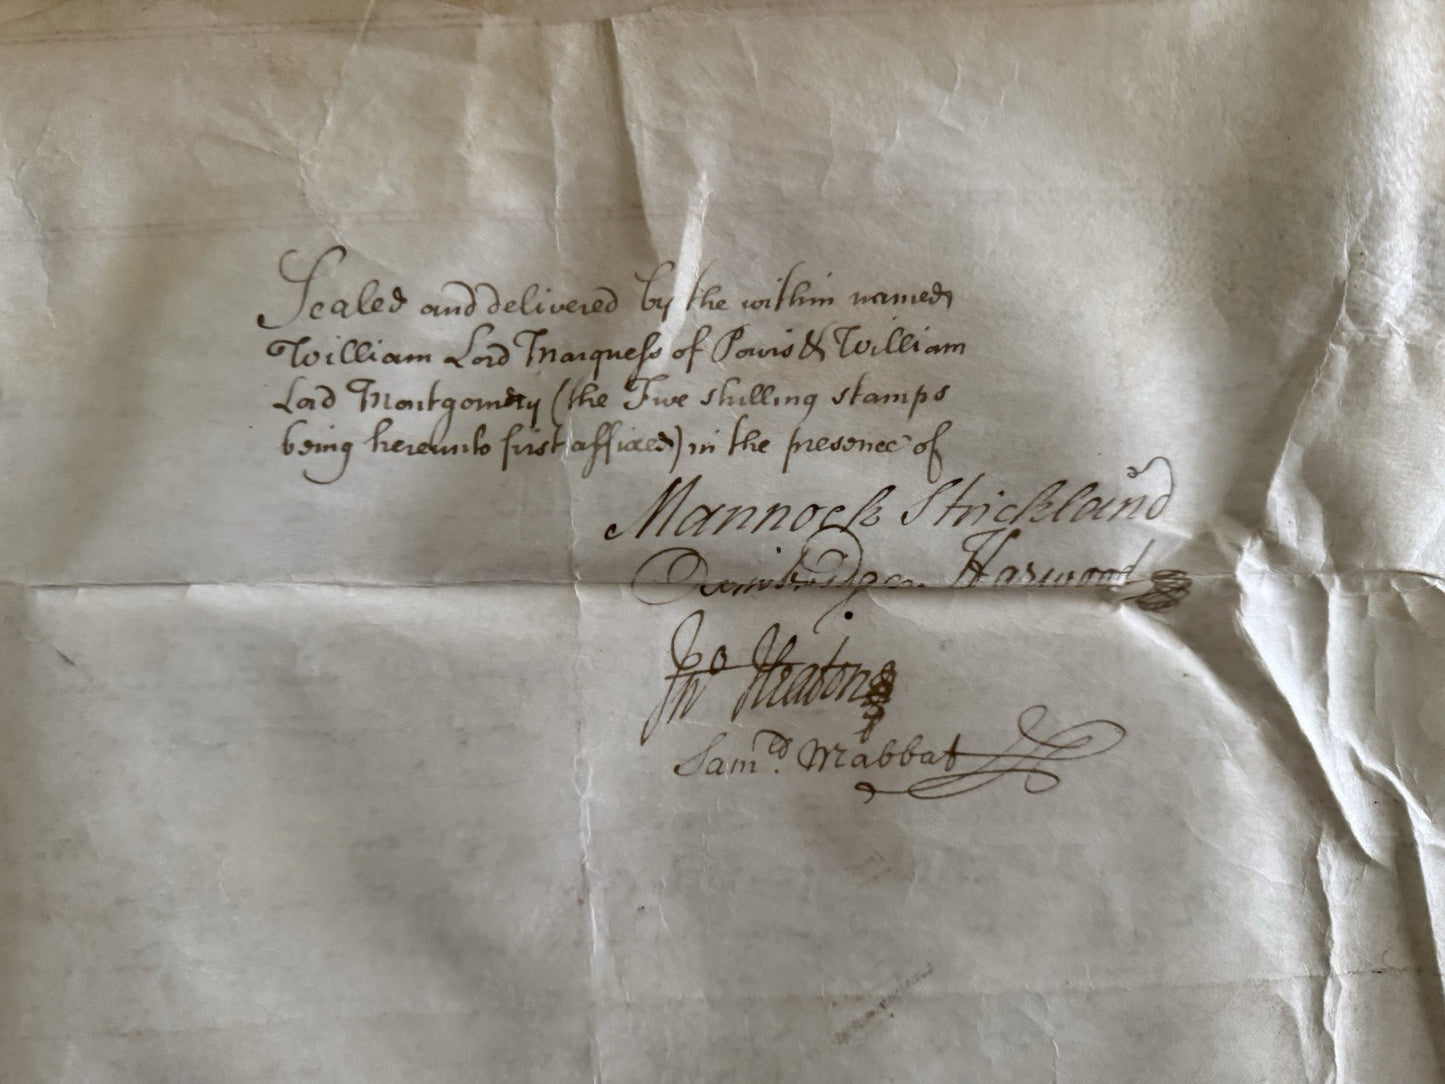 Sealed and delivered by the within named
William Lord Marquess of Powis & William
Lord Montgomery (the Five shilling stamps
being hereunto first affixed) in the presence of
Mannock Strickland
Harwood
Jno Heaton
Saml. Mabbat